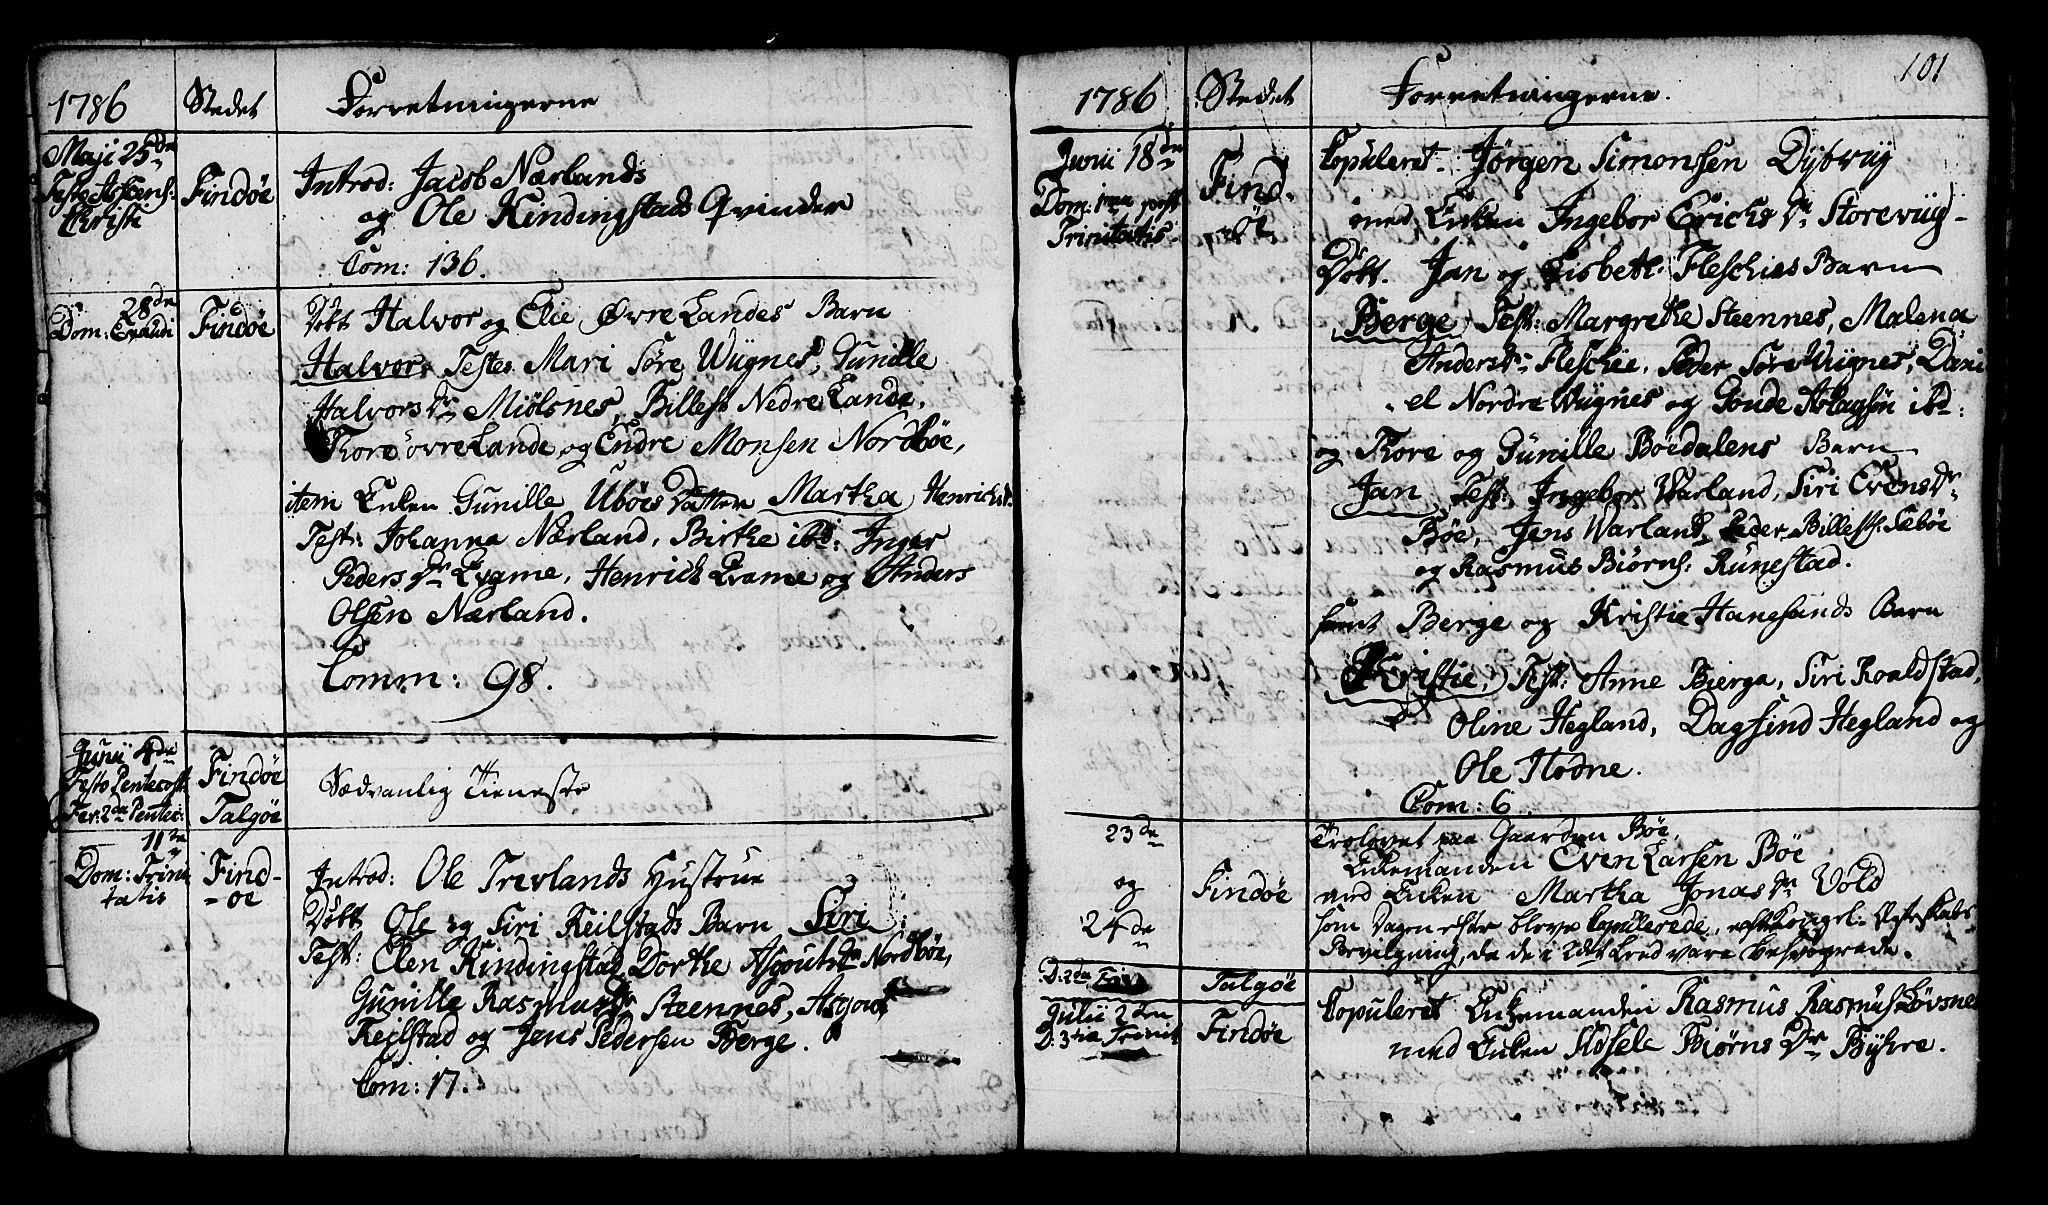 1786 Stedet Forretningerne
Maji 25de
Festo Ascens:
Christi
Findöe
Introd: Jacob Nærlands
og Ole Kindingstads Qvinder
Com: 136.
28de
Dom: Exaudi
Findöe
Döbt Halvor og Elie Øvre Landes Barn
Halvor, Testes Mari Söre Wügnes, Gunille
Halvors Dr Miölsnes, Billest Nedre Lande,
Tore övre Lande og Endre Monsen Nordböe,
item Enken Gunille Uböes Datter Martha Henrichsdr.
Test: Johanna Nærland, Birthe ibd: Inger
Peders Dr Evame, Henrich Evame og Anders
Olsen Nærland.
Comm: 98.
Junii 4de
Festo Pentecost:
Fer: 2da Pentec:
Findöe
Talgöe
Sædvanlig Tieneste
11te
Dom: Trini
tatis
Find-
-öe
Introd: Ole Trevlands Hustrue
Döbt Ole og Siri Keilstads Barn Siri
Test: Elen Kindingstad, Dorthe Asgoutsdr Nordböe,
Gunille Rasmusdr Steennes, Asgout
Keilstad og Jens Pedersen Berge.
Com: 17.
101
1786 Stedet Forretningerne.
Junii 18de
Dom: 1ma post
Trinitatis
Find-
-öe
Copuleret. Jörgen Simonsen Dybvüg
med Enken Ingebor Erichs Dr Storevüg-
Döbt. Jan og Lisbeth Fleschies Barn
Berge, Test: Margrethe Steennes, Malena
Andersdr Fleschie, Peder Söre Wügnes, Dani
el Nordre Wügnes og Goude Aslagsön ibd:
og Tore og Gunille Böedalens Barn
Jan Test: Ingebor Warland, Siri Evensdr
Böe, Jens Warland, Peder Billest: Seböe
og Rasmus Biörns: Runestad.
samt Berge og Kristie Hanesunds Barn
Kristie, Test: Anne Bierga, Siri Roaldstad,
Oline Hegland, Dagfind Hegland og
Ole Flodne.
Com: 6
23de
og
24de
Findöe
Trolovet paa Gaarden Böe,
Enkemanden Even Larsen Böe
med Enken Martha Jonasdr Vold
som Dagen efter bleve Copulerede, efter Kongel: Ægteskabs
Bevilgning, da de i 2det Leed vare besvogrede.
D: 2da Trin.
Talgöe
Julii 2den
D. 3tia Trinit
Findöe
Copuleret Enkemanden Rasmus Rasmus: Lövsnes
med Enken Sidsele Biörns Dr Byhre.